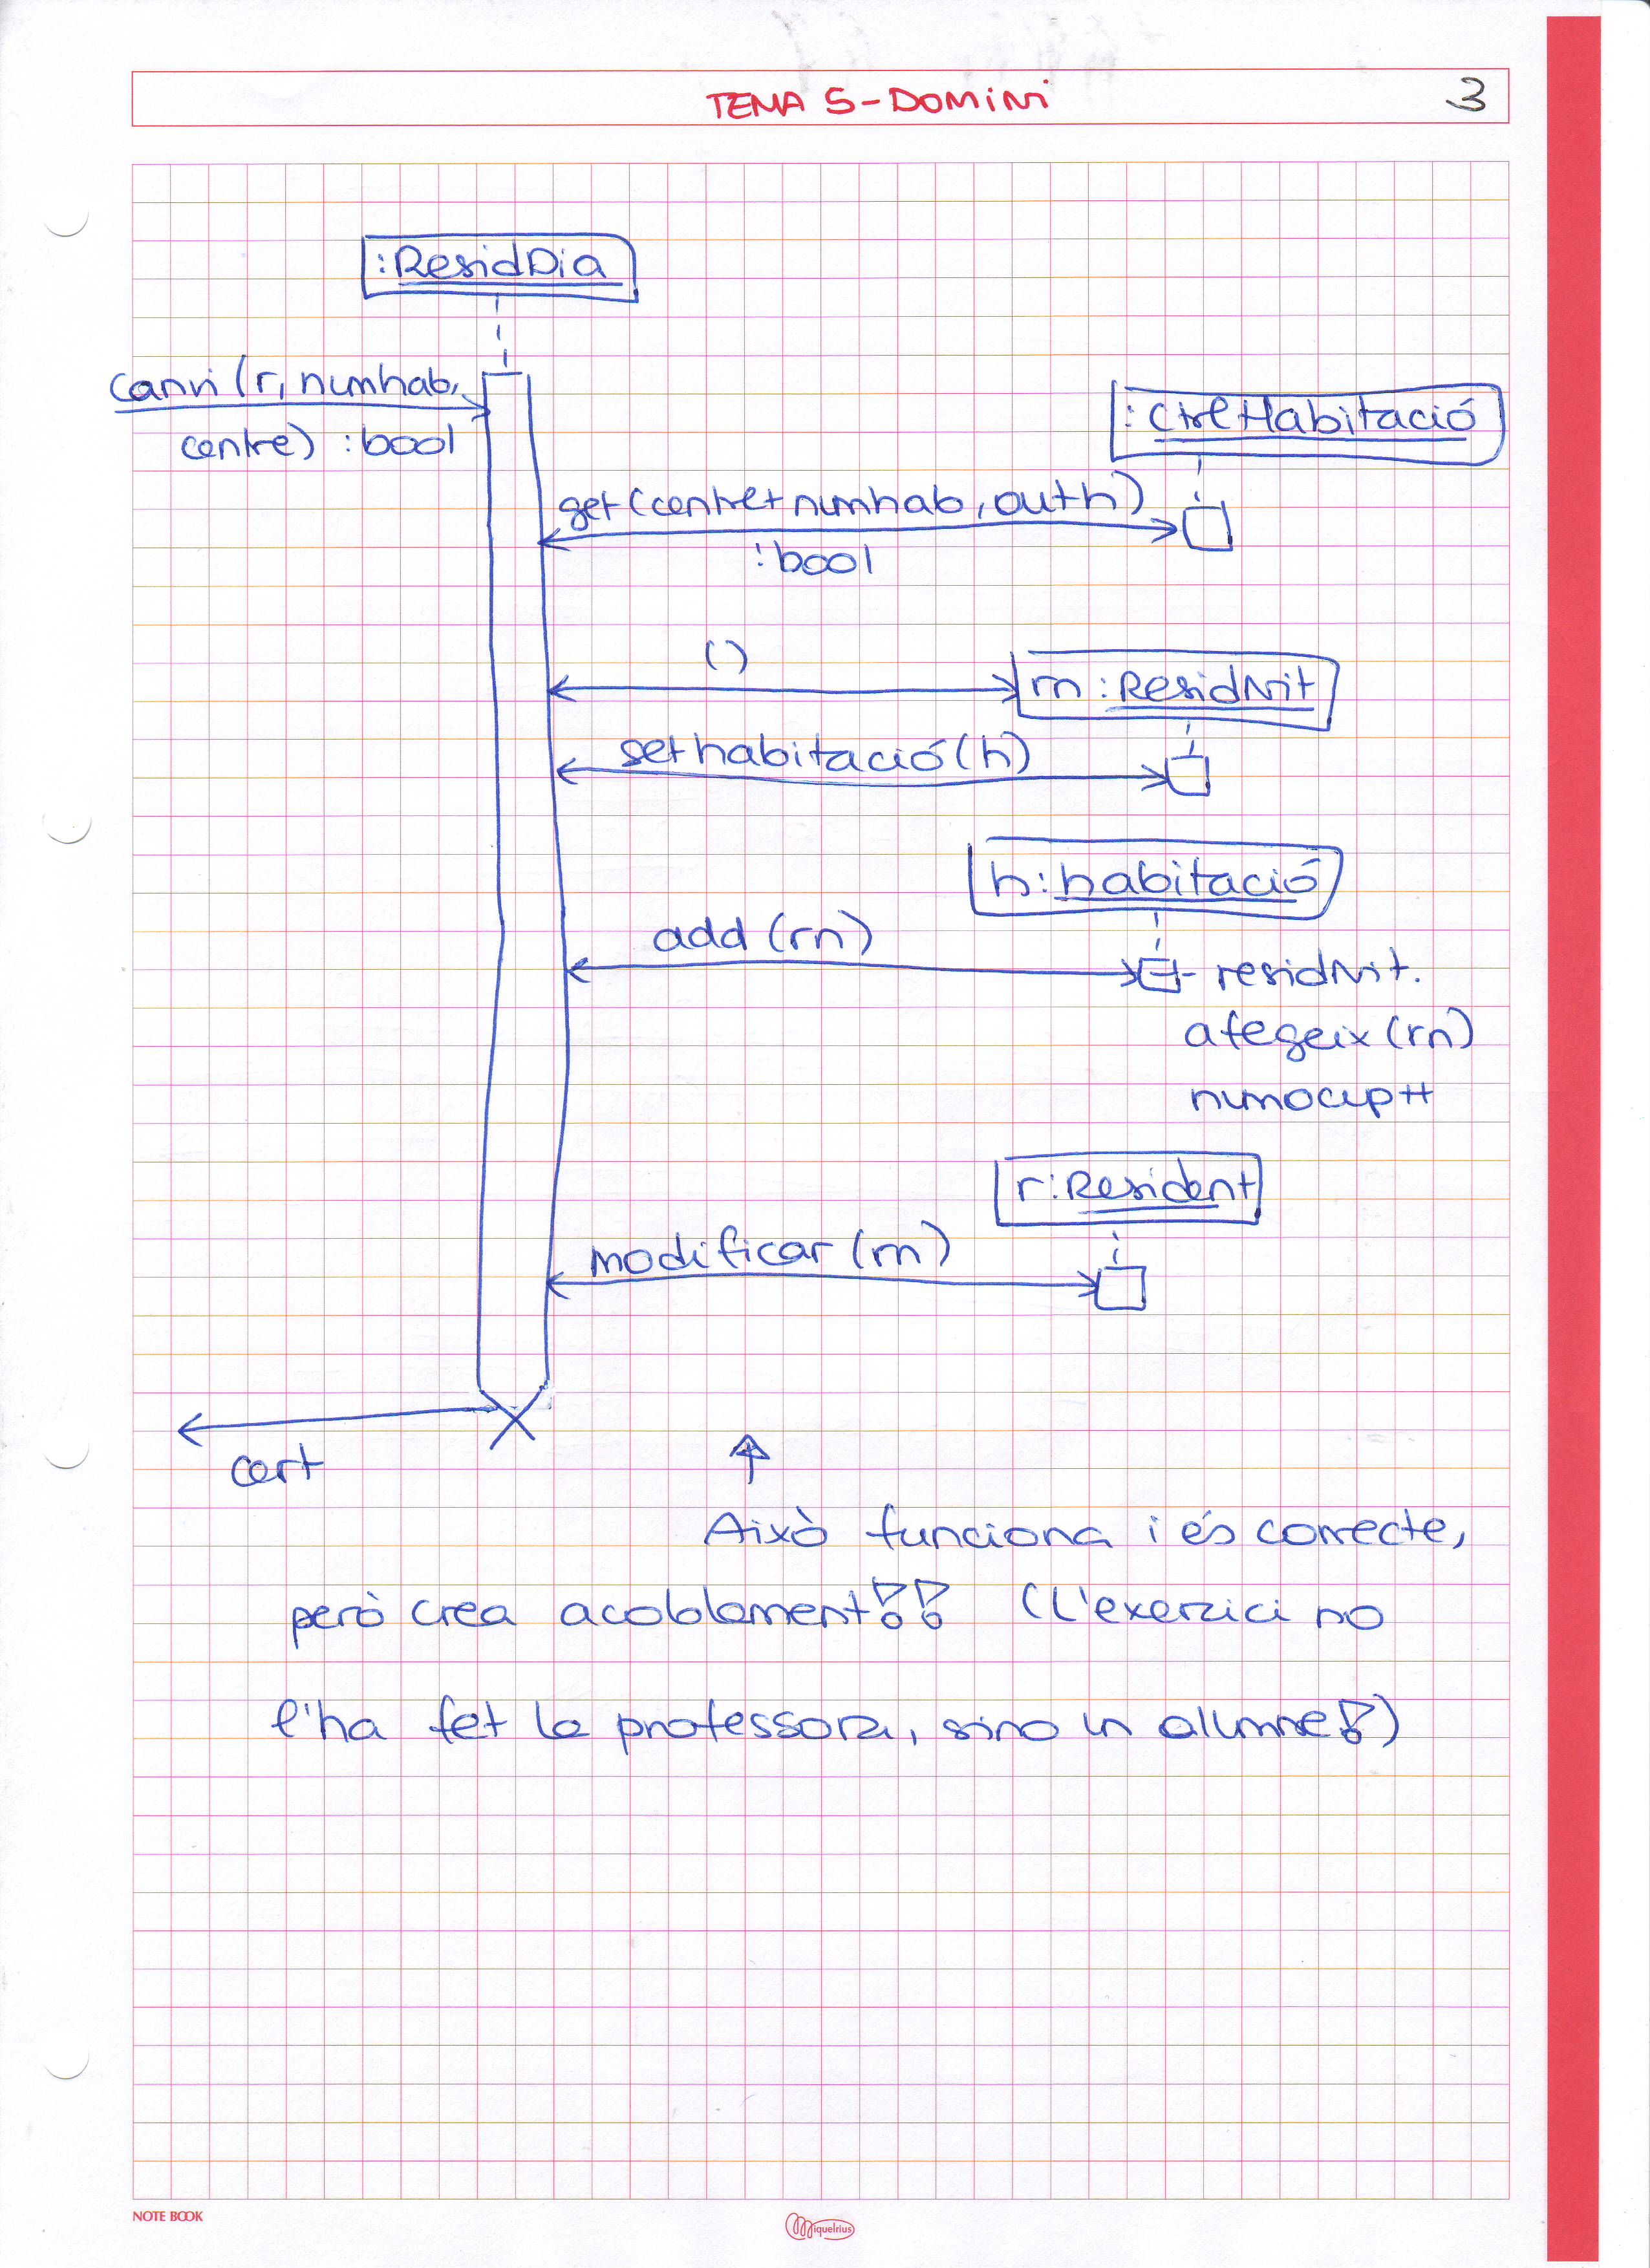 TEMA 5-DOMINI
3
:ResidDia
canvi (r, numhab,
centre) : bool
:CtrlHabitació
get(centre+numhab, out h)
:bool
()
rn : ResidNit
sethabitació(h)
h: habitació
add (rn)
residNit.
afegeix (rn)
numocup++
r: Resident
modificar (rn)
cert
Això funciona i és correcte,
però crea acoblament!! (L'exercici no
l'ha fet la professora, sino un alumne!)
NOTE BOOK
Miquelrius